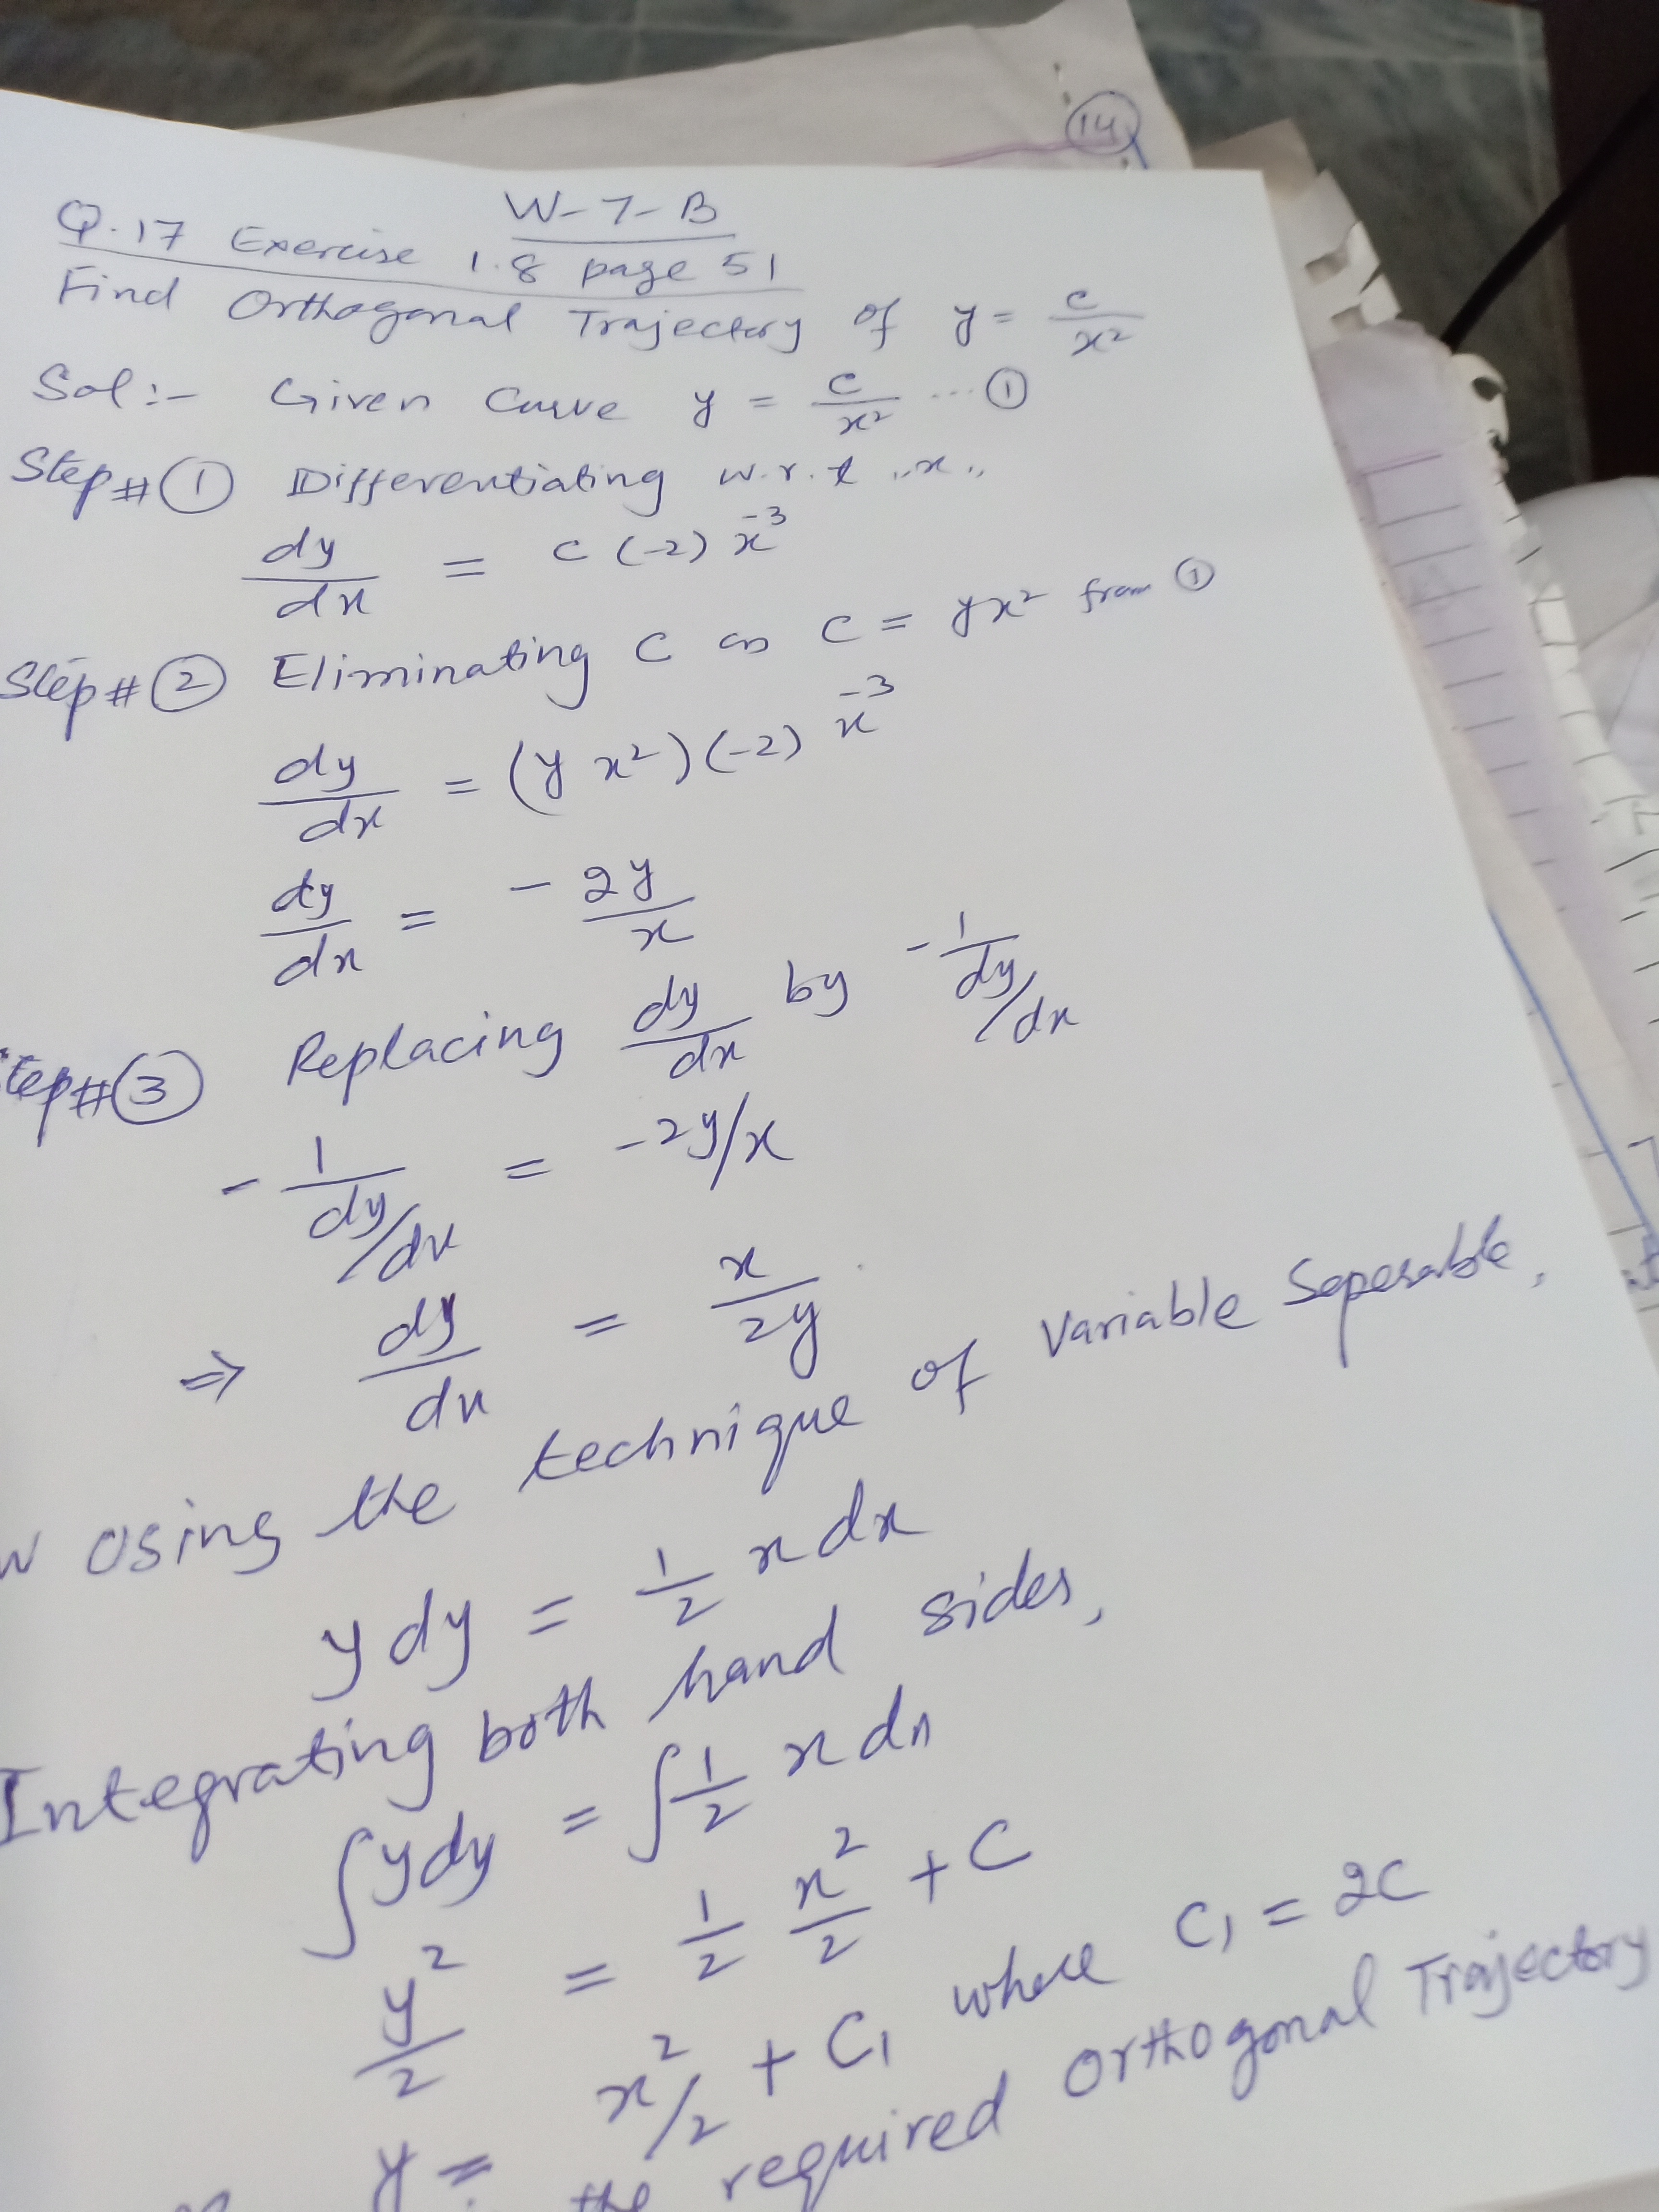 14
W-7-B
Q.17 Exercise 1.8 page 51
Find Orthogonal Trajectory of y = c/x²
Sol:- Given Curve y = c/x² ... ①
Step# ① Differentiating w.r.t "x"
dy/dx = c (-2) x⁻³
Step# ② Eliminating C as C = yx² from ①
dy/dx = (y x²)(-2) x⁻³
dy/dx = - 2y/x
tep# ③ Replacing dy/dx by - 1/dy/dx
- 1/dy/dx = -2y/x
⇒ dy/dx = x/2y
w Using the technique of Variable Seperable,
y dy = 1/2 x dx
Integrating both hand sides,
∫y dy = ∫1/2 x dx
y²/2 = 1/2 x²/2 + C
y = x²/2 + C₁ where C₁ = 2C
the required Orthogonal Trajectory